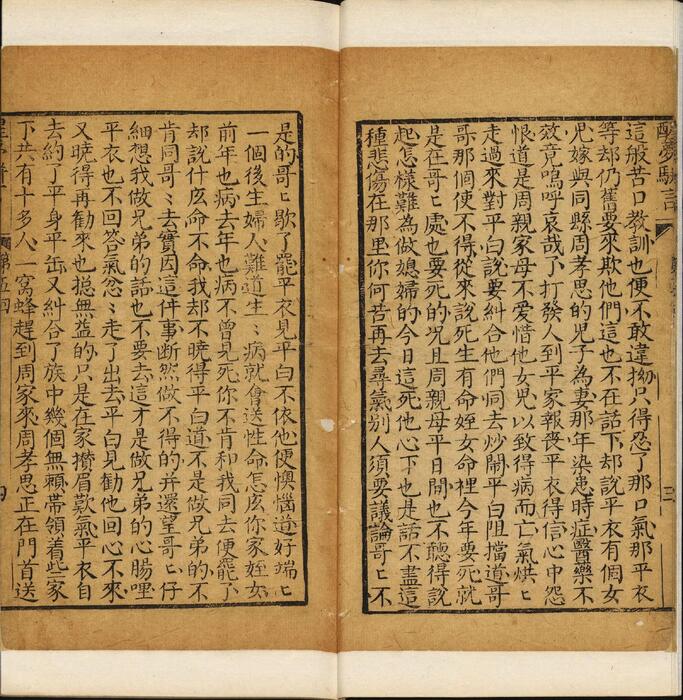 醒夢駢言
這般苦口教訓也便不敢違拗只得忍了那口氣那平衣
等却仍舊要來欺他們這也不在話下却說平衣有個女
児嫁與同縣周孝思的児子為妻那年染患時症醫藥不
效竟嗚呼哀哉了打發人到平家報喪平衣得信心中怨
恨道是周親家母不愛惜他女児以致得病而亡氣烘ヒ
走過來對平白說要糾合他們同去炒鬧平白阻擋道哥
哥那個使不得從來說死生有命姪女命裡今年要死就
是在哥ヒ處也要死的况且周親母平日間也不聽得說
起怎樣難為做媳婦的今日這死他心下也是話不盡這
種悲傷在那里你何苦再去尋氣别人須要議論哥ヒ不
三
是的哥ヒ歇了罷平衣見平白不依他便懊惱道好端ヒ
一個後生婦人難道生ミ病就會送性命怎庅你家姪女
前年也病去年也病不曾見死你不肯和我同去便罷了
却說什庅命不命我却不曉得平白道不是做兄弟的不
肯同哥ミ去實因這件事断然做不得的并還望哥ヒ仔
細想我做兄弟的話也不要去這才是做兄弟的心腸哩
平衣也不回答氣忿ミ走了出去平白見勸他回心不來
又曉得再勸來也搃無益的只是在家攢眉歎氣平衣自
去約了平身平缶又糾合了族中幾個無賴帶領着些家
下共有十多人一窩蜂趕到周家來周孝思正在門首送
第五回
四